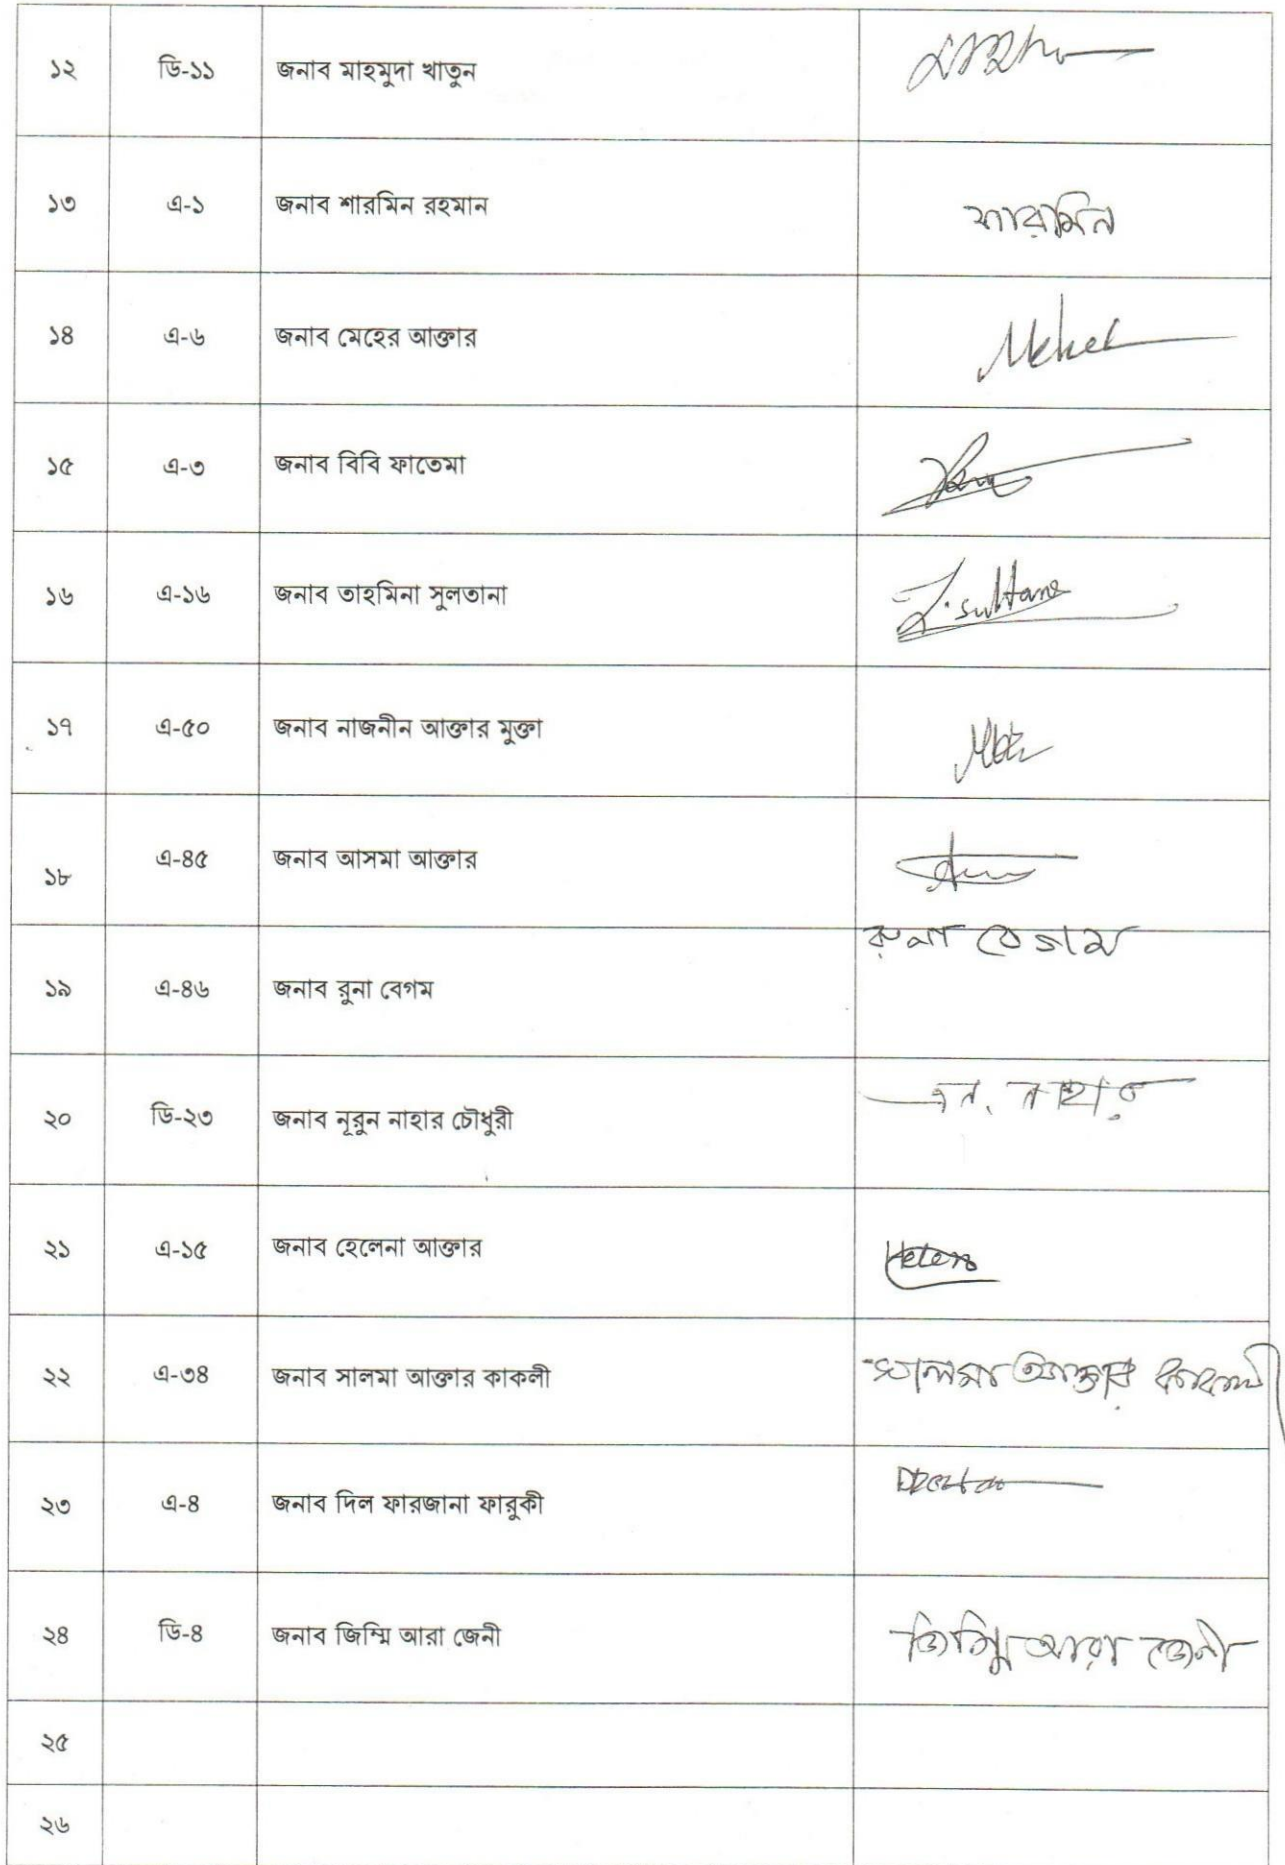 ১২ ডি-১১ জনাব মাহমুদা খাতুন
১৩ এ-১ জনাব শারমিন রহমান শারমিন
১৪ এ-৬ জনাব মেহের আক্তার Meher
১৫ এ-৩ জনাব বিবি ফাতেমা
১৬ এ-১৬ জনাব তাহমিনা সুলতানা T. sultana
১৭ এ-৫০ জনাব নাজনীন আক্তার মুক্তা
১৮ এ-৪৫ জনাব আসমা আক্তার
১৯ এ-৪৬ জনাব রুনা বেগম রুনা বেগম
২০ ডি-২৩ জনাব নূরুন নাহার চৌধুরী এন. নাহার
২১ এ-১৫ জনাব হেলেনা আক্তার Helena
২২ এ-৩৪ জনাব সালমা আক্তার কাকলী সালমা আক্তার কাকলী
২৩ এ-৪ জনাব দিল ফারজানা ফারুকী
২৪ ডি-৪ জনাব জিম্মি আরা জেনী জিম্মি আরা জেনী
২৫
২৬